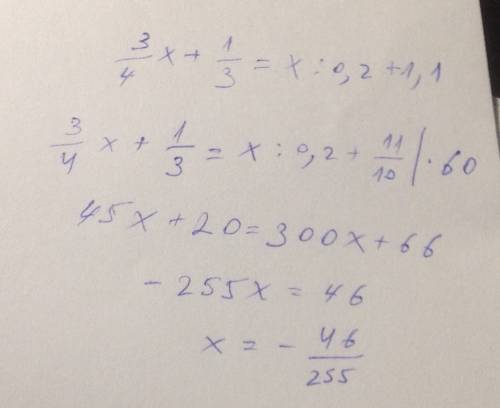 3/4 x + 1/3 = x : 0,2 + 1,1
3/4 x + 1/3 = x : 0,2 + 11/10 | · 60
45x + 20 = 300x + 66
- 255x = 46
x = - 46/255